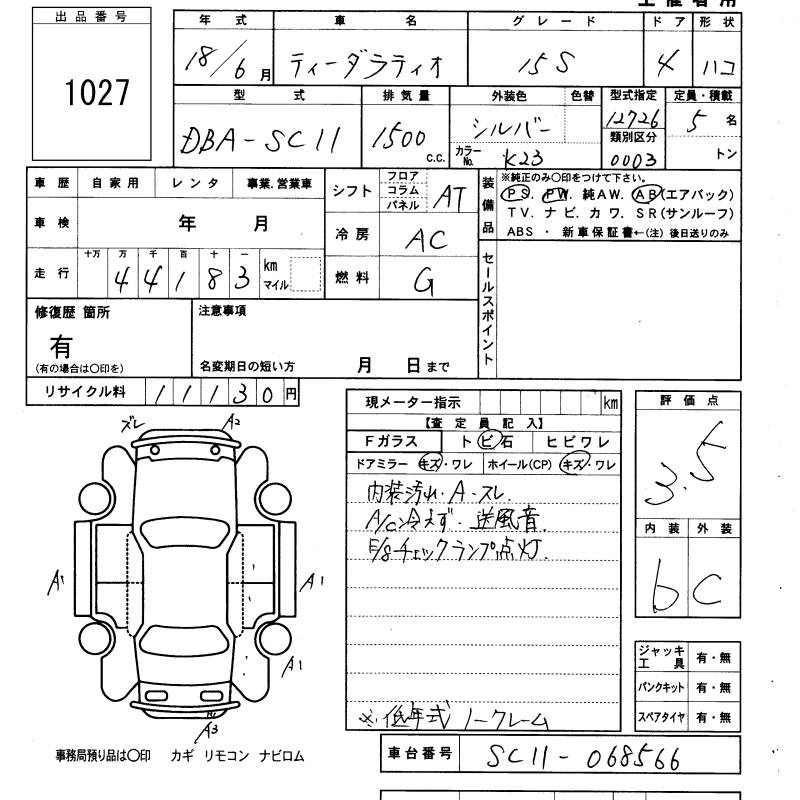 出品番号
1027
年式 車名 グレード ドア 形状
18/6月 ティーダラティオ 15S 4 ハコ
型式 排気量 外装色 色替 型式指定 定員・積載
DBA-SC11 1500 c.c. シルバー 12726 5名
カラーNo. K23 類別区分 0003 トン
車歴 自家用 レンタ 事業.営業車
車検 年 月
走行 十万 万 千 百 十 一
4 4 1 8 3 km マイル
シフト フロア コラム パネル AT
冷房 AC
燃料 G
装備品
※純正のみ〇印をつけて下さい。
PS. PW. 純AW. AB(エアバック)
TV. ナビ. カワ. SR(サンルーフ)
ABS ・ 新車保証書←(注) 後日送りのみ
セールスポイント
修復歴 箇所
有
(有の場合は〇印を)
注意事項
名変期日の短い方 月 日まで
リサイクル料 11130円
現メーター指示 km
【査定員記入】
Fガラス トビ石 ヒビワレ
ドアミラー キズ・ワレ ホイール(CP) キズ・ワレ
内装汚れ・A・スレ.
A/C冷えず・送風音.
E/gチェックランプ点灯.
※低年式 ノークレーム
評価点
3.5
内装 外装
b C
ズレ A2
A1 A1
A1
A3
ジャッキ工具 有・無
パンクキット 有・無
スペアタイヤ 有・無
事務局預り品は〇印 カギ リモコン ナビロム
車台番号 SC11-068566